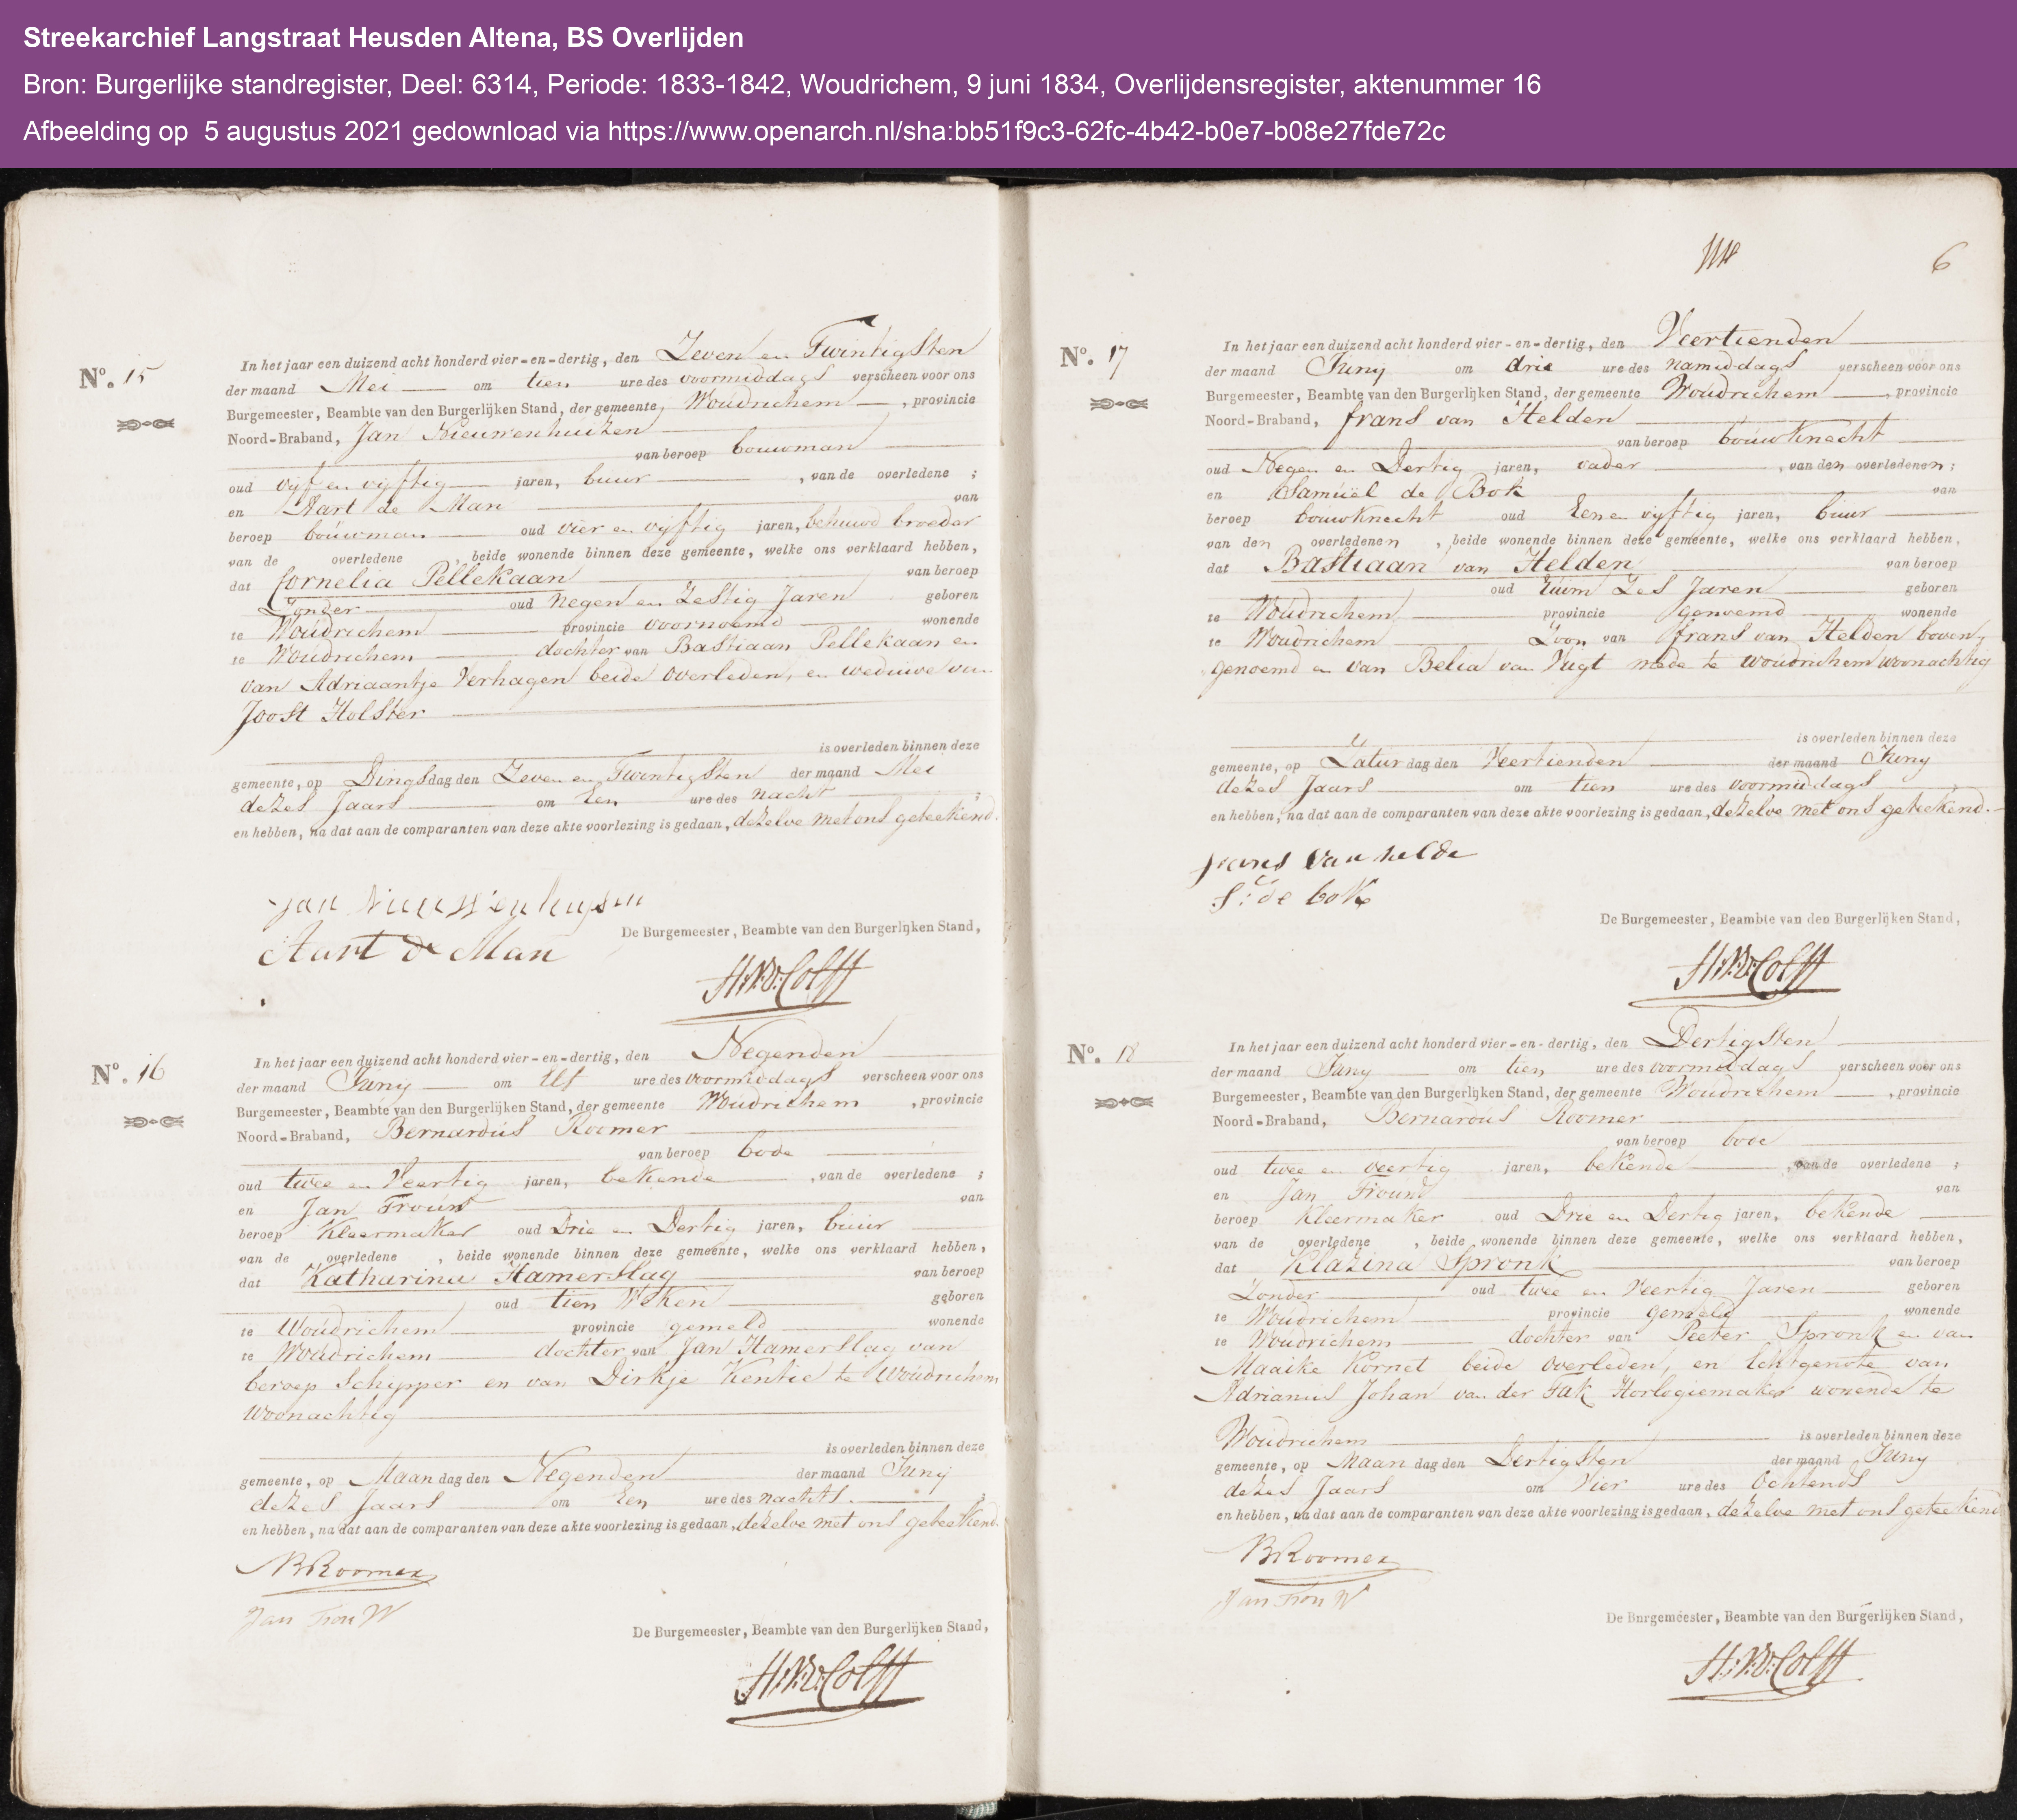 Streekarchief Langstraat Heusden Altena, BS Overlijden
Bron: Burgerlijke standregister, Deel: 6314, Periode: 1833-1842, Woudrichem, 9 juni 1834, Overlijdensregister, aktenummer 16
Afbeelding op 5 augustus 2021 gedownload via https://www.openarch.nl/sha:bb51f9c3-62fc-4b42-b0e7-b08e27fde72c
No. 15
In het jaar een duizend acht honderd vier-en-dertig, den Zeven en Twintigsten
der maand Mei om tien ure des voormiddags verscheen voor ons
Burgemeester, Beambte van den Burgerlijken Stand, der gemeente Woudrichem, provincie
Noord-Braband, Jan Nieuwenhuizen
van beroep bouwman
oud vijf en vijftig jaren, buur, van de overledene ;
en Aart de Man van
beroep bouwman oud vier en vijftig jaren, behuwd broeder
van de overledene, beide wonende binnen deze gemeente, welke ons verklaard hebben,
dat Cornelia Pellekaan van beroep
Zonder oud negen en Zestig Jaren geboren
te Woudrichem provincie voornoemd wonende
te Woudrichem dochter van Bastiaan Pellekaan en
van Adriaantje Verhagen beide overleden, en weduwe van
Joost Holster
is overleden binnen deze
gemeente, op Dingsdag den Zeven en Twintigsten der maand Mei
dezes Jaars om Een ure des nacht ;
en hebben, na dat aan de comparanten van deze akte voorlezing is gedaan, dezelve met ons geteekend.
Jan Nieuwenhuysen
Aart de Man
De Burgemeester, Beambte van den Burgerlijken Stand,
H:V:D:Colff
No. 16
In het jaar een duizend acht honderd vier-en-dertig, den Negenden
der maand Juny om Elf ure des voormiddags verscheen voor ons
Burgemeester, Beambte van den Burgerlijken Stand, der gemeente Woudrichem, provincie
Noord-Braband, Bernardus Roomer
van beroep bode
oud twee en Veertig jaren, bekende, van de overledene ;
en Jan Trouw van
beroep Kleermaker oud Drie en Dertig jaren, buur
van de overledene, beide wonende binnen deze gemeente, welke ons verklaard hebben,
dat Katharina Hamerslag van beroep
oud tien Weken geboren
te Woudrichem provincie gemeld wonende
te Woudrichem dochter van Jan Hamerslag van
beroep Schipper en van Dirkje Kentie te Woudrichem
Woonachtig
is overleden binnen deze
gemeente, op Maandag den Negenden der maand Juny
dezes Jaars om Een ure des nachts. ;
en hebben, na dat aan de comparanten van deze akte voorlezing is gedaan, dezelve met ons geteekend.
BRoomer
Jan Trou W
De Burgemeester, Beambte van den Burgerlijken Stand,
H:V:D:Colff
6
No. 17
In het jaar een duizend acht honderd vier-en-dertig, den Veertienden
der maand Juny om drie ure des namiddags verscheen voor ons
Burgemeester, Beambte van den Burgerlijken Stand, der gemeente Woudrichem, provincie
Noord-Braband, frans van Helden
van beroep bouwknecht
oud Negen en Dertig jaren, vader, van den overledenen ;
en Samuel de Bok van
beroep bouwknecht oud Een en vijftig jaren, buur
van den overledenen, beide wonende binnen deze gemeente, welke ons verklaard hebben,
dat Bastiaan van Helden van beroep
oud Ruim Zes Jaren geboren
te Woudrichem provincie genoemd wonende
te Woudrichem Zoon van frans van Helden boven
genoemd en van Belia van Vugt mede te woudrichem woonachtig
is overleden binnen deze
gemeente, op Saturdag den Veertienden der maand Juny
dezes Jaars om tien ure des voormiddags
en hebben, na dat aan de comparanten van deze akte voorlezing is gedaan, dezelve met ons geteekend.
frans van helde
S: de bok
De Burgemeester, Beambte van den Burgerlijken Stand,
H:V:D:Colff
No. 18
In het jaar een duizend acht honderd vier-en-dertig, den Dertigsten
der maand Juny om tien ure des voormiddags verscheen voor ons
Burgemeester, Beambte van den Burgerlijken Stand, der gemeente Woudrichem, provincie
Noord-Braband, Bernardus Roomer
van beroep bode
oud twee en veertig jaren, bekende, van de overledene ;
en Jan Trouw van
beroep Kleermaker oud Drie en Dertig jaren, bekende
van de overledene, beide wonende binnen deze gemeente, welke ons verklaard hebben,
dat Klazina Spronk van beroep
Zonder oud twee en Veertig Jaren geboren
te Woudrichem provincie gemeld wonende
te Woudrichem dochter van Peeter Spronk en van
Maaike Kornet beide overleden, en Echtgenote van
Adrianus Johan van der Tak Horlogiemaker wonende te
Woudrichem is overleden binnen deze
gemeente, op Maandag den Dertigsten der maand Juny
dezes Jaars om Vier ure des Ochtends
en hebben, na dat aan de comparanten van deze akte voorlezing is gedaan, dezelve met ons geteekend
BRoomer
Jan Trou W
De Burgemeester, Beambte van den Burgerlijken Stand,
H:V:D:Colff